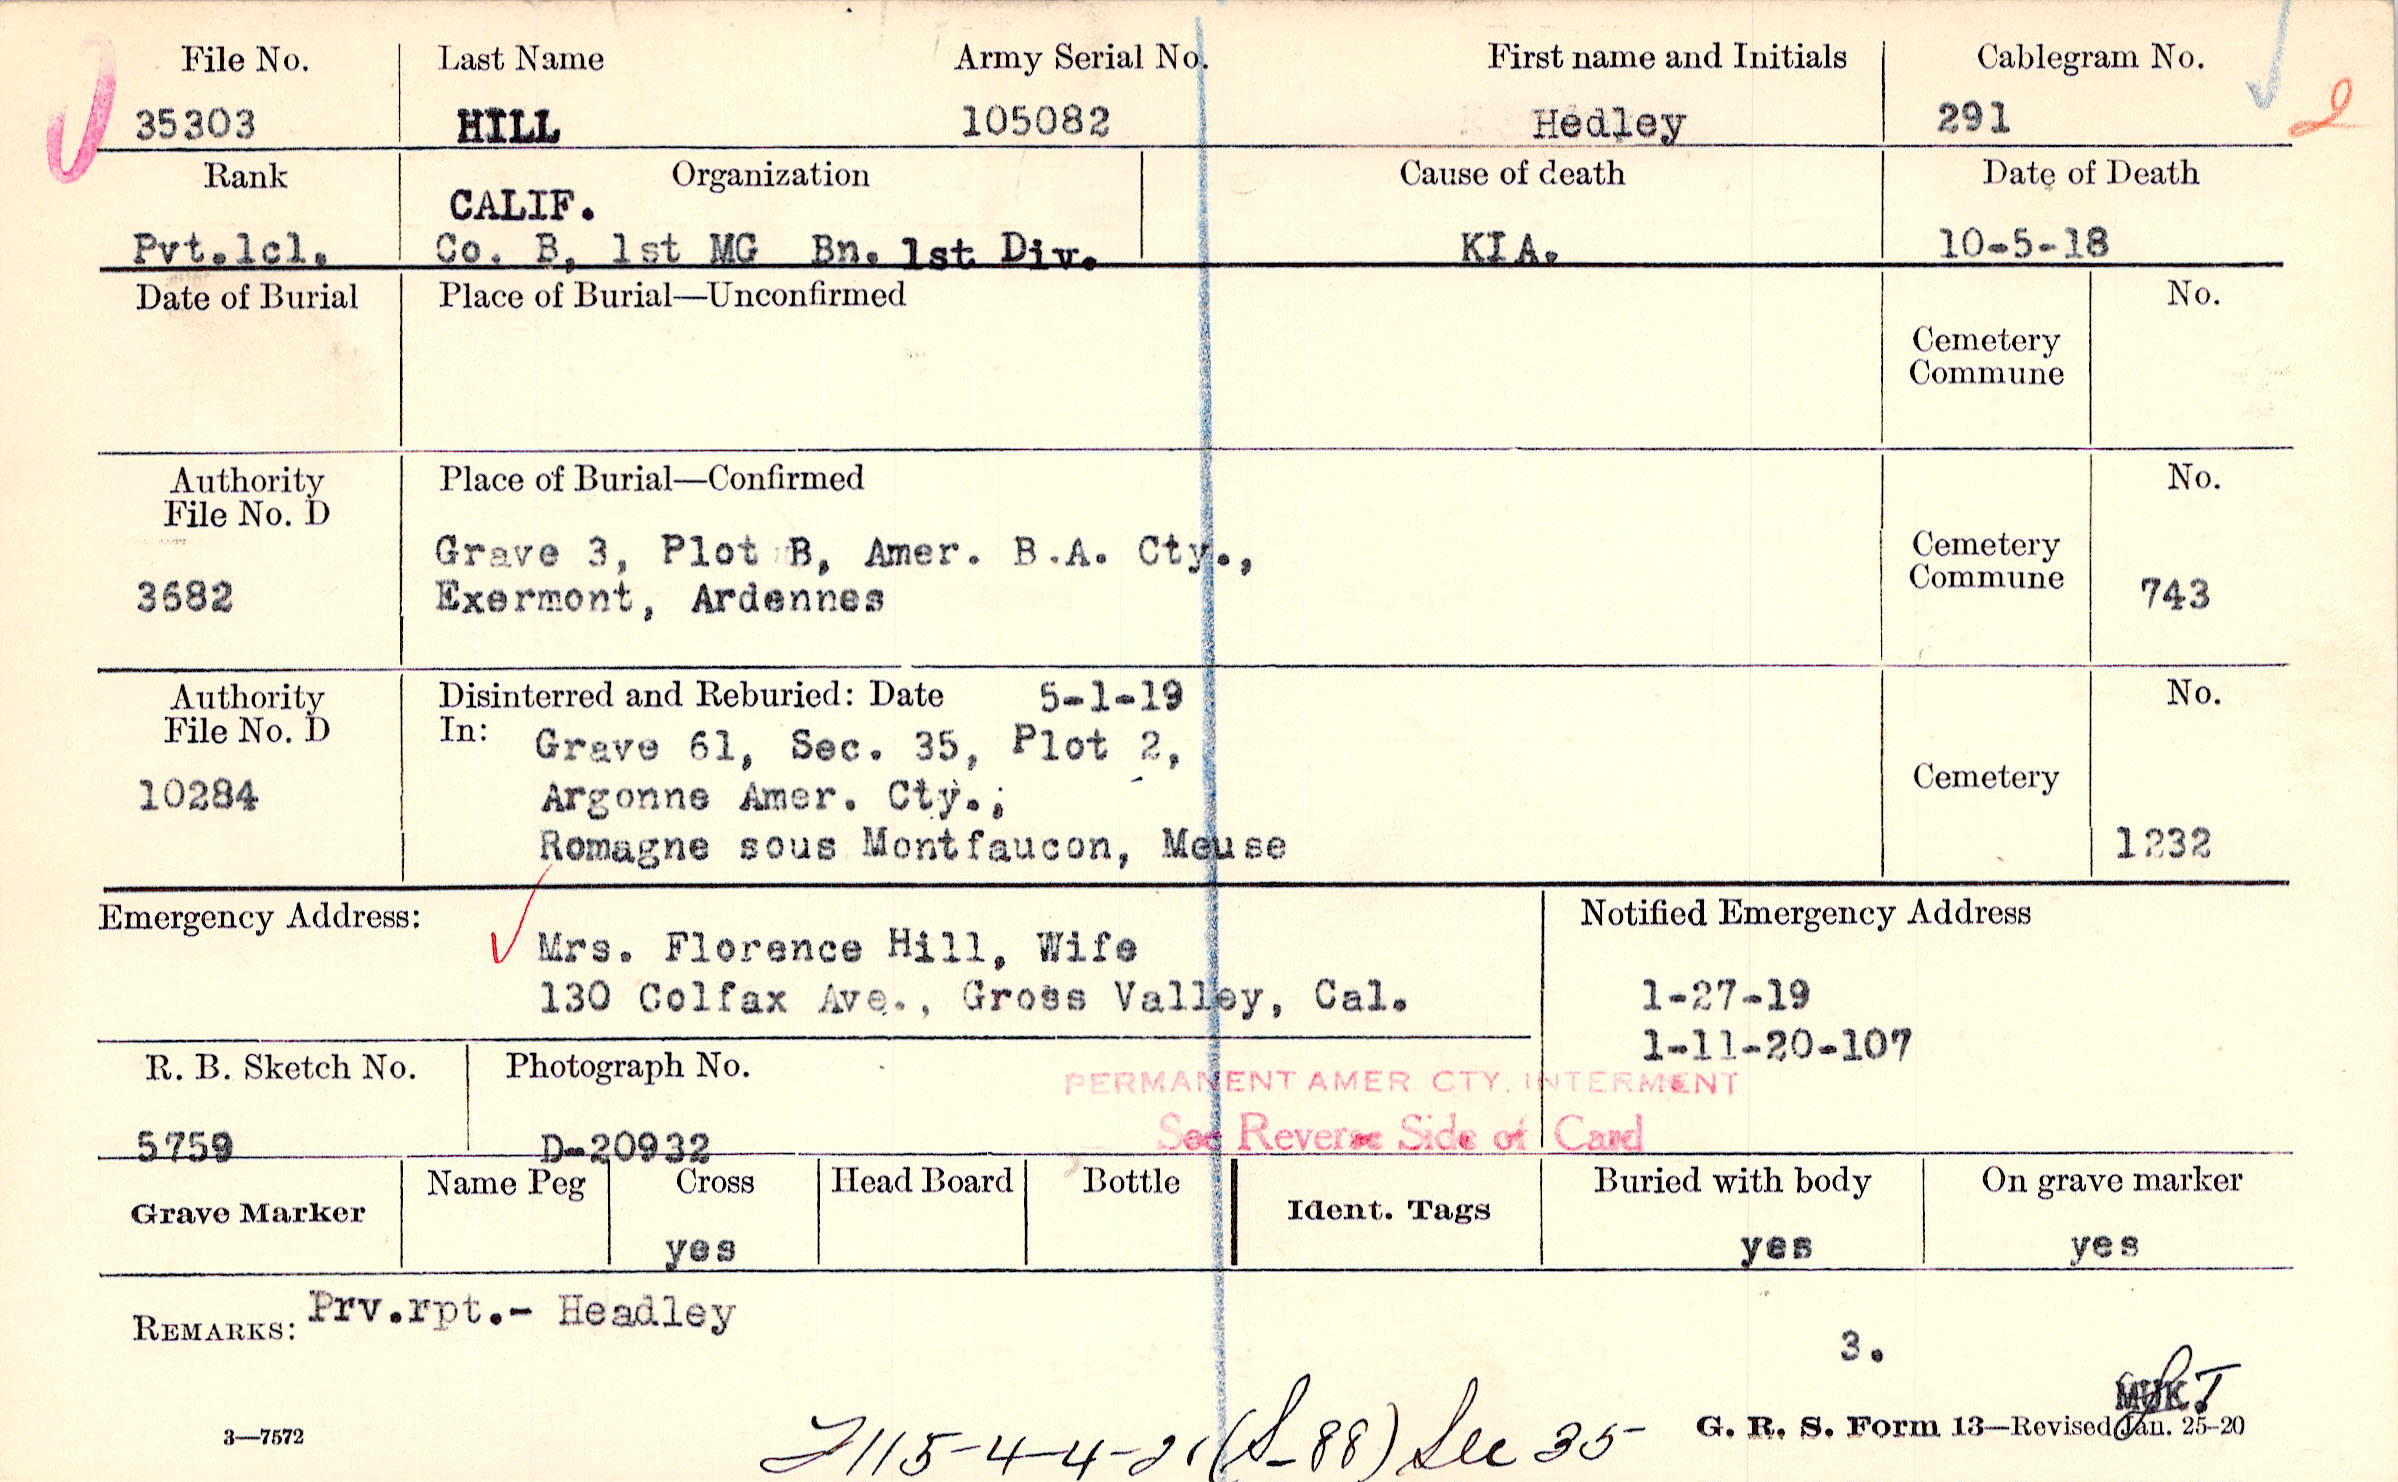 File No. Last Name Army Serial No. First name and Initials Cablegram No.
35303 HILL 105082 Hedley 291
2
Rank Organization Cause of death Date of Death
CALIF.
Pvt.1cl. Co. B, 1st MG Bn. 1st Div. KIA. 10-5-18
Date of Burial Place of Burial—Unconfirmed No.
Cemetery
Commune
Authority Place of Burial—Confirmed No.
File No. D
Grave 3, Plot B, Amer. B.A. Cty., Cemetery
3682 Exermont, Ardennes Commune 743
Authority Disinterred and Reburied: Date 5-1-19 No.
File No. D In: Grave 61, Sec. 35, Plot 2,
10284 Argonne Amer. Cty., Cemetery
Romagne sous Montfaucon, Meuse 1232
Emergency Address: Notified Emergency Address
Mrs. Florence Hill, Wife
130 Colfax Ave., Gross Valley, Cal. 1-27-19
1-11-20-107
R. B. Sketch No. Photograph No.
PERMANENT AMER. CTY. INTERMENT
5759 D-20932 See Reverse Side of Card
Grave Marker Name Peg Cross Head Board Bottle Ident. Tags Buried with body On grave marker
yes yes yes
REMARKS: Prv.rpt.- Headley
3.
MUK.
3—7572 G. R. S. Form 13—Revised Jan. 25-20
2115-4-4-21 (S-88) Sec 35